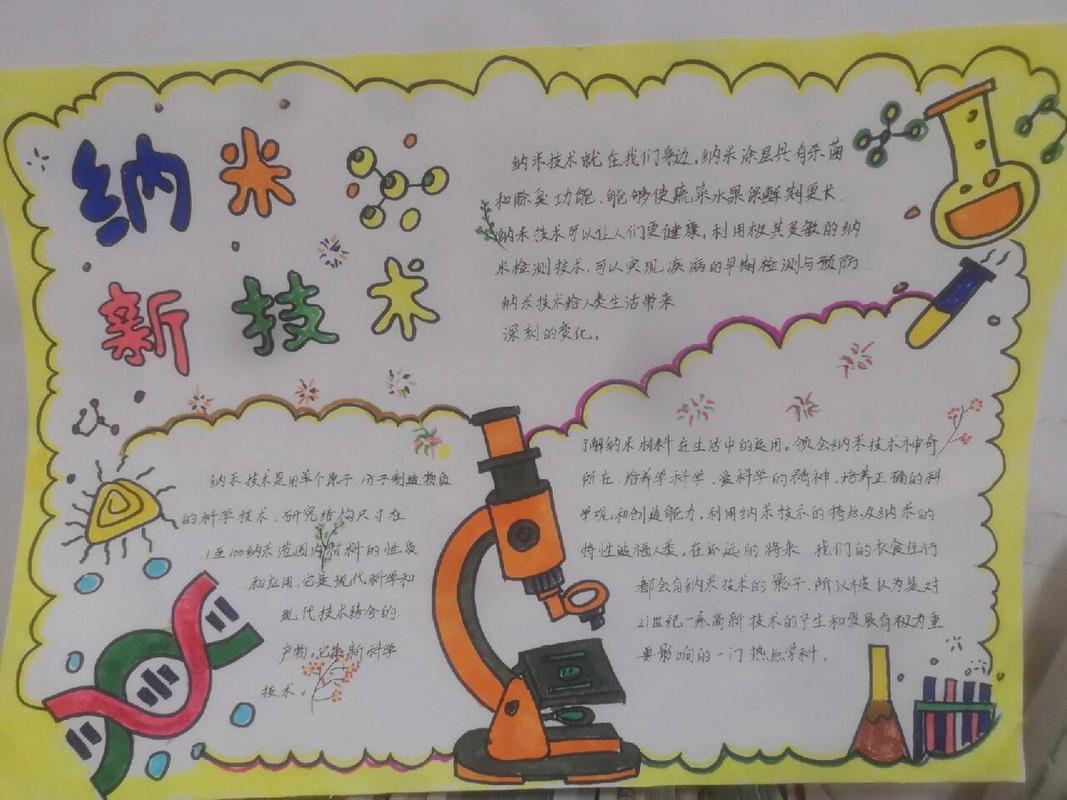 纳米
新技术
纳米技术就在我们身边,纳米涂层具有杀菌
和除臭功能,能够使蔬菜水果保鲜期更长.
纳米技术可以让人们更健康,利用极其灵敏的纳
米检测技术,可以实现疾病的早期检测与预防
纳米技术给人类生活带来
深刻的变化。
纳米技术是用单个原子、分子制造物质
的科学技术,研究结构尺寸在
1至100纳米范围内材料的性质
和应用,它是现代科学和
现代技术结合的
产物。它是新科学
技术。
了解纳米材料在生活中的运用。领会纳米技术神奇
所在,培养学科学、爱科学的精神,培养正确的科
学观和创造能力,利用纳米技术的特点及纳米的
特性造福人类,在不远的将来,我们的衣食住行
都会有纳米技术的影子,所以被认为是对
21世纪一系高新技术的产生和发展有极为重
要影响的一门热点学科.